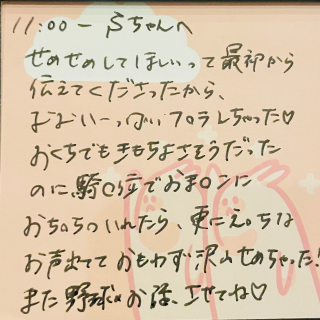 11:00〜 Sちゃんへ
せめせめしてほしいって最初から
伝えてくださったから、
おおいーっぱいフ○ラしちゃった♡
おくちでもきもちよさそうだった
のに騎○位でおま○ンに
おち○ちついれたら、更にえ○ちな
お声出てて おもわず沢山せめちゃった!
また野球のお話、させてね♡